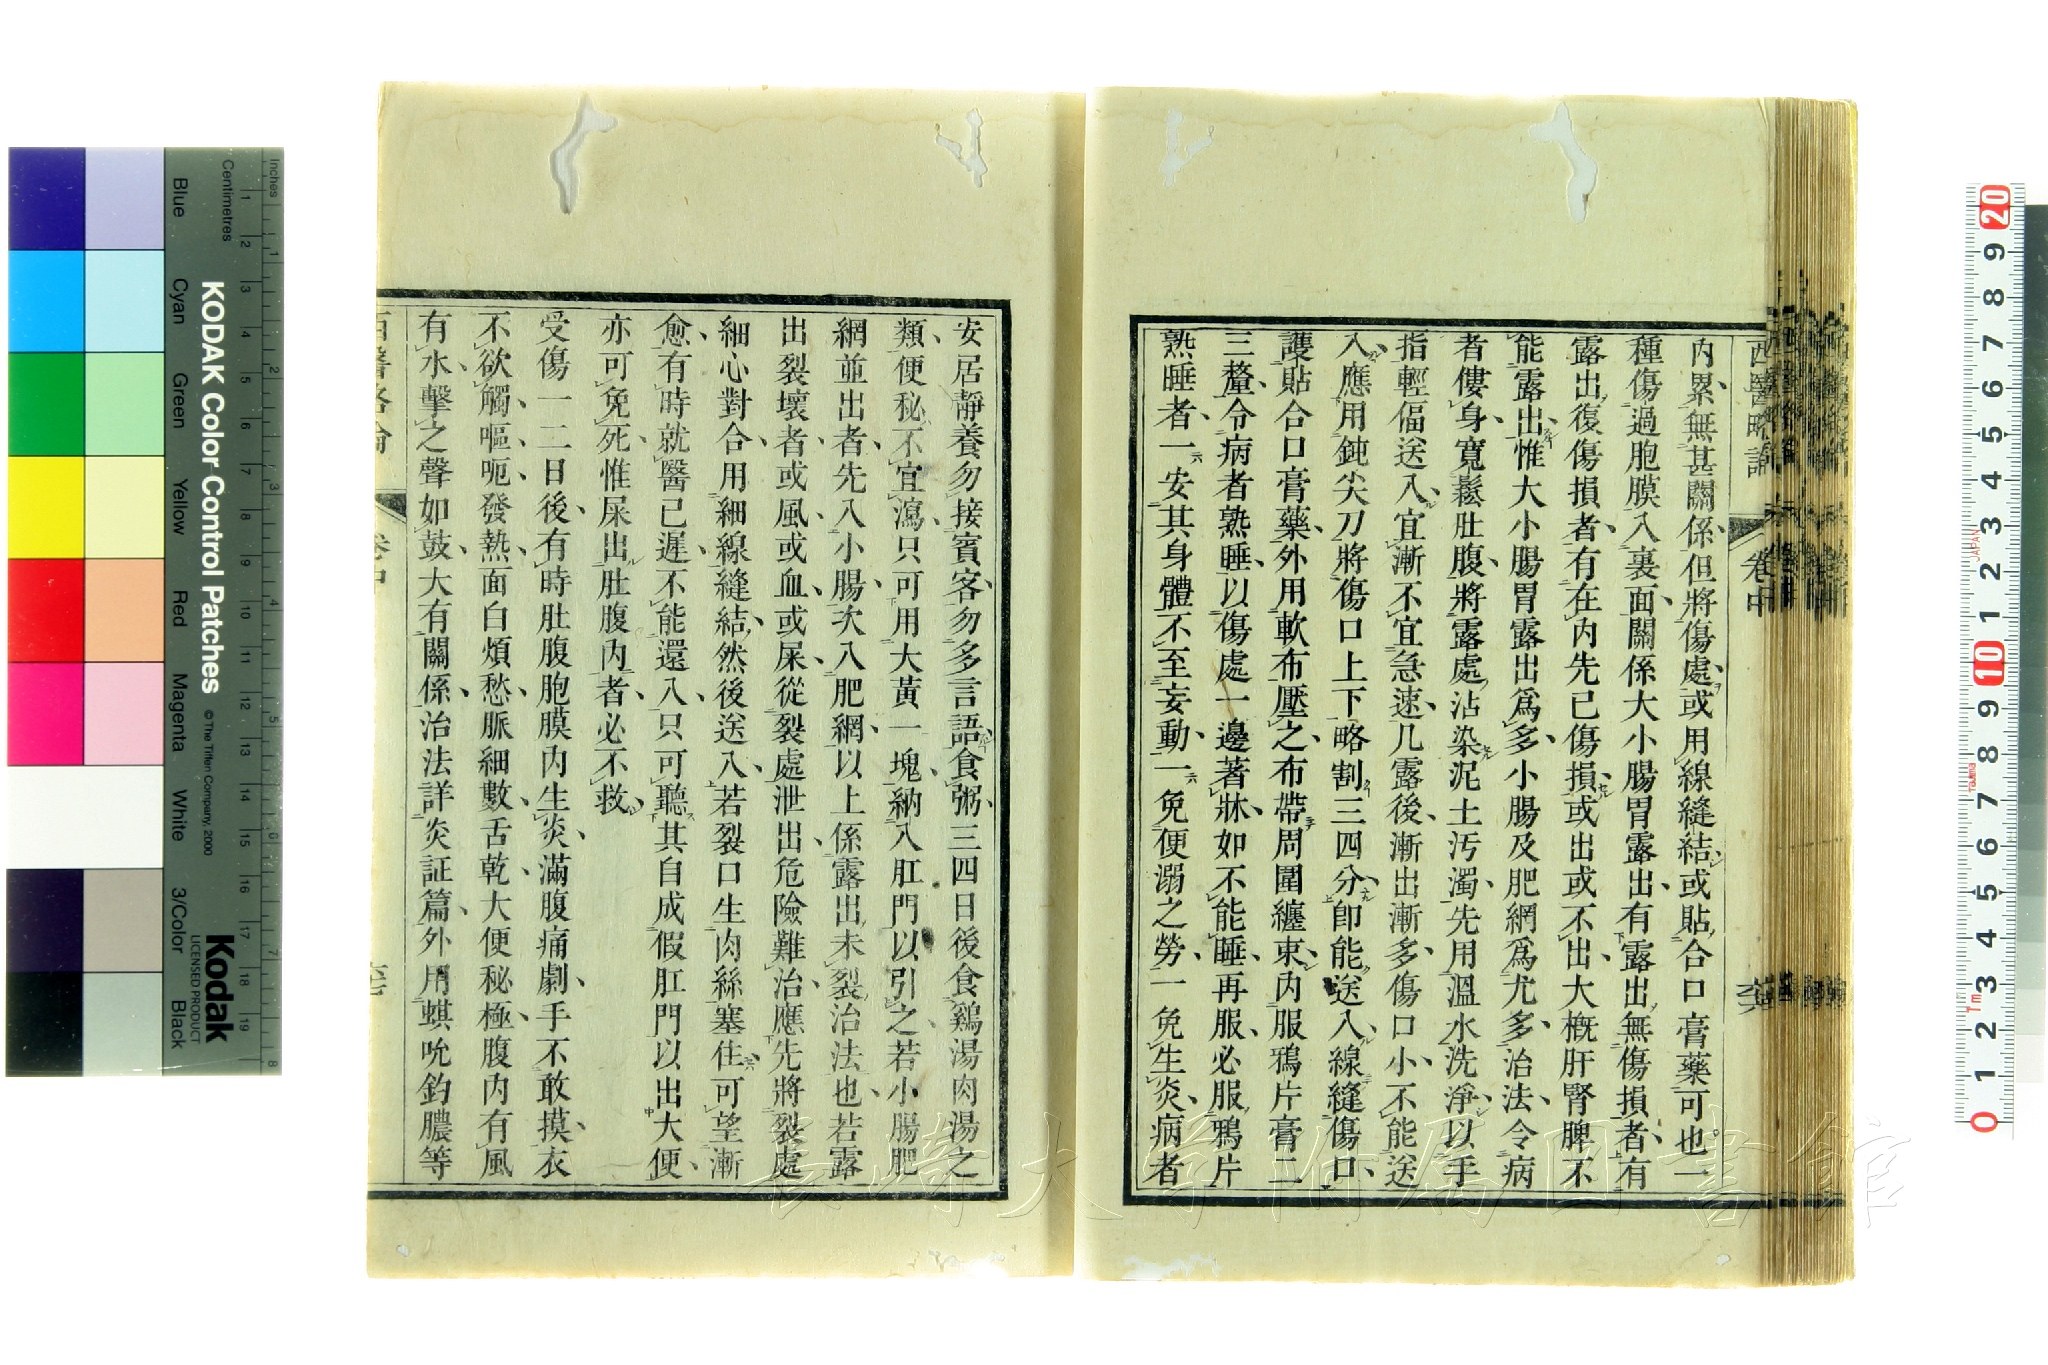 西醫略論
卷中
內累無甚關係但將傷處或用線縫結或貼合口膏藥可也一
種傷過胞膜入裏面關係大小腸胃露出有露出無傷損者有
露出復傷損者有在內先已傷損或出或不出大概肝腎脾不
能露出惟大小腸胃露出爲多小腸及肥網爲尤多治法令病
者僂身寬鬆肚腹將露處沾染泥土汚濁先用溫水洗淨以手
指輕偪送入宜漸不宜急速凡露後漸出漸多傷口小不能送
入應用鈍尖刀將傷口上下略割三四分卽能送入線縫傷口
護貼合口膏藥外用軟布壓之布帶周圍纏束內服鴉片膏二
三釐令病者熟睡以傷處一邊著牀如不能睡再服必服鴉片
熟睡者一安其身體不至妄動一免便溺之勞一免生炎病者
安居靜養勿接賓客勿多言語食粥三四日後食鷄湯肉湯之
類便秘不宜瀉只可用大黃一塊納入肛門以引之若小腸肥
網並出者先入小腸次入肥網以上係露出未裂治法也若露
出裂壞者或風或血或屎從裂處泄出危險難治應先將裂處
細心對合用細線縫結然後送入若裂口生肉絲塞住可望漸
愈有時就醫已遲不能還入只可聽其自成假肛門以出大便
亦可免死惟屎出肚腹內者必不救
受傷一二日後有時肚腹胞膜內生炎滿腹痛劇手不敢摸衣
不欲觸嘔呃發熱面白煩愁脈細數舌乾大便秘極腹內有風
有水擊之聲如鼓大有關係治法詳炎証篇外用蜞吮鈞膿等
西醫略論
卷中
長崎大学附属図書館
KODAK Color Control Patches
© The Tiffen Company, 2000
Kodak
LICENSED PRODUCT
Inches
Centimetres
Blue
Cyan
Green
Yellow
Red
Magenta
White
3/Color
Black
1 2 3 4 5 6 7 8 9 10 11 12 13 14 15 16 17 18 19
1 2 3 4 5 6 7 8
20 9 8 7 6 5 4 3 2 1 10 9 8 7 6 5 4 3 2 1 0
JAPAN